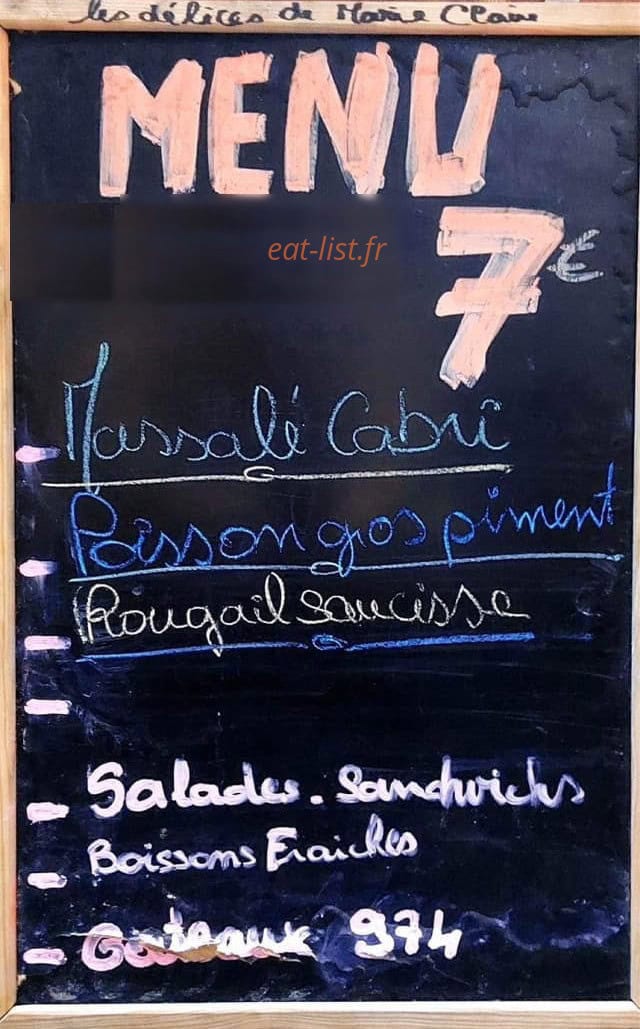 les délices de Marie Claire
MENU
eat-list.fr
7€
Massalé Cabri
Poisson gros piment
Rougail saucisse
Salades. Sandwichs
Boissons Fraiches
Gateaux 974